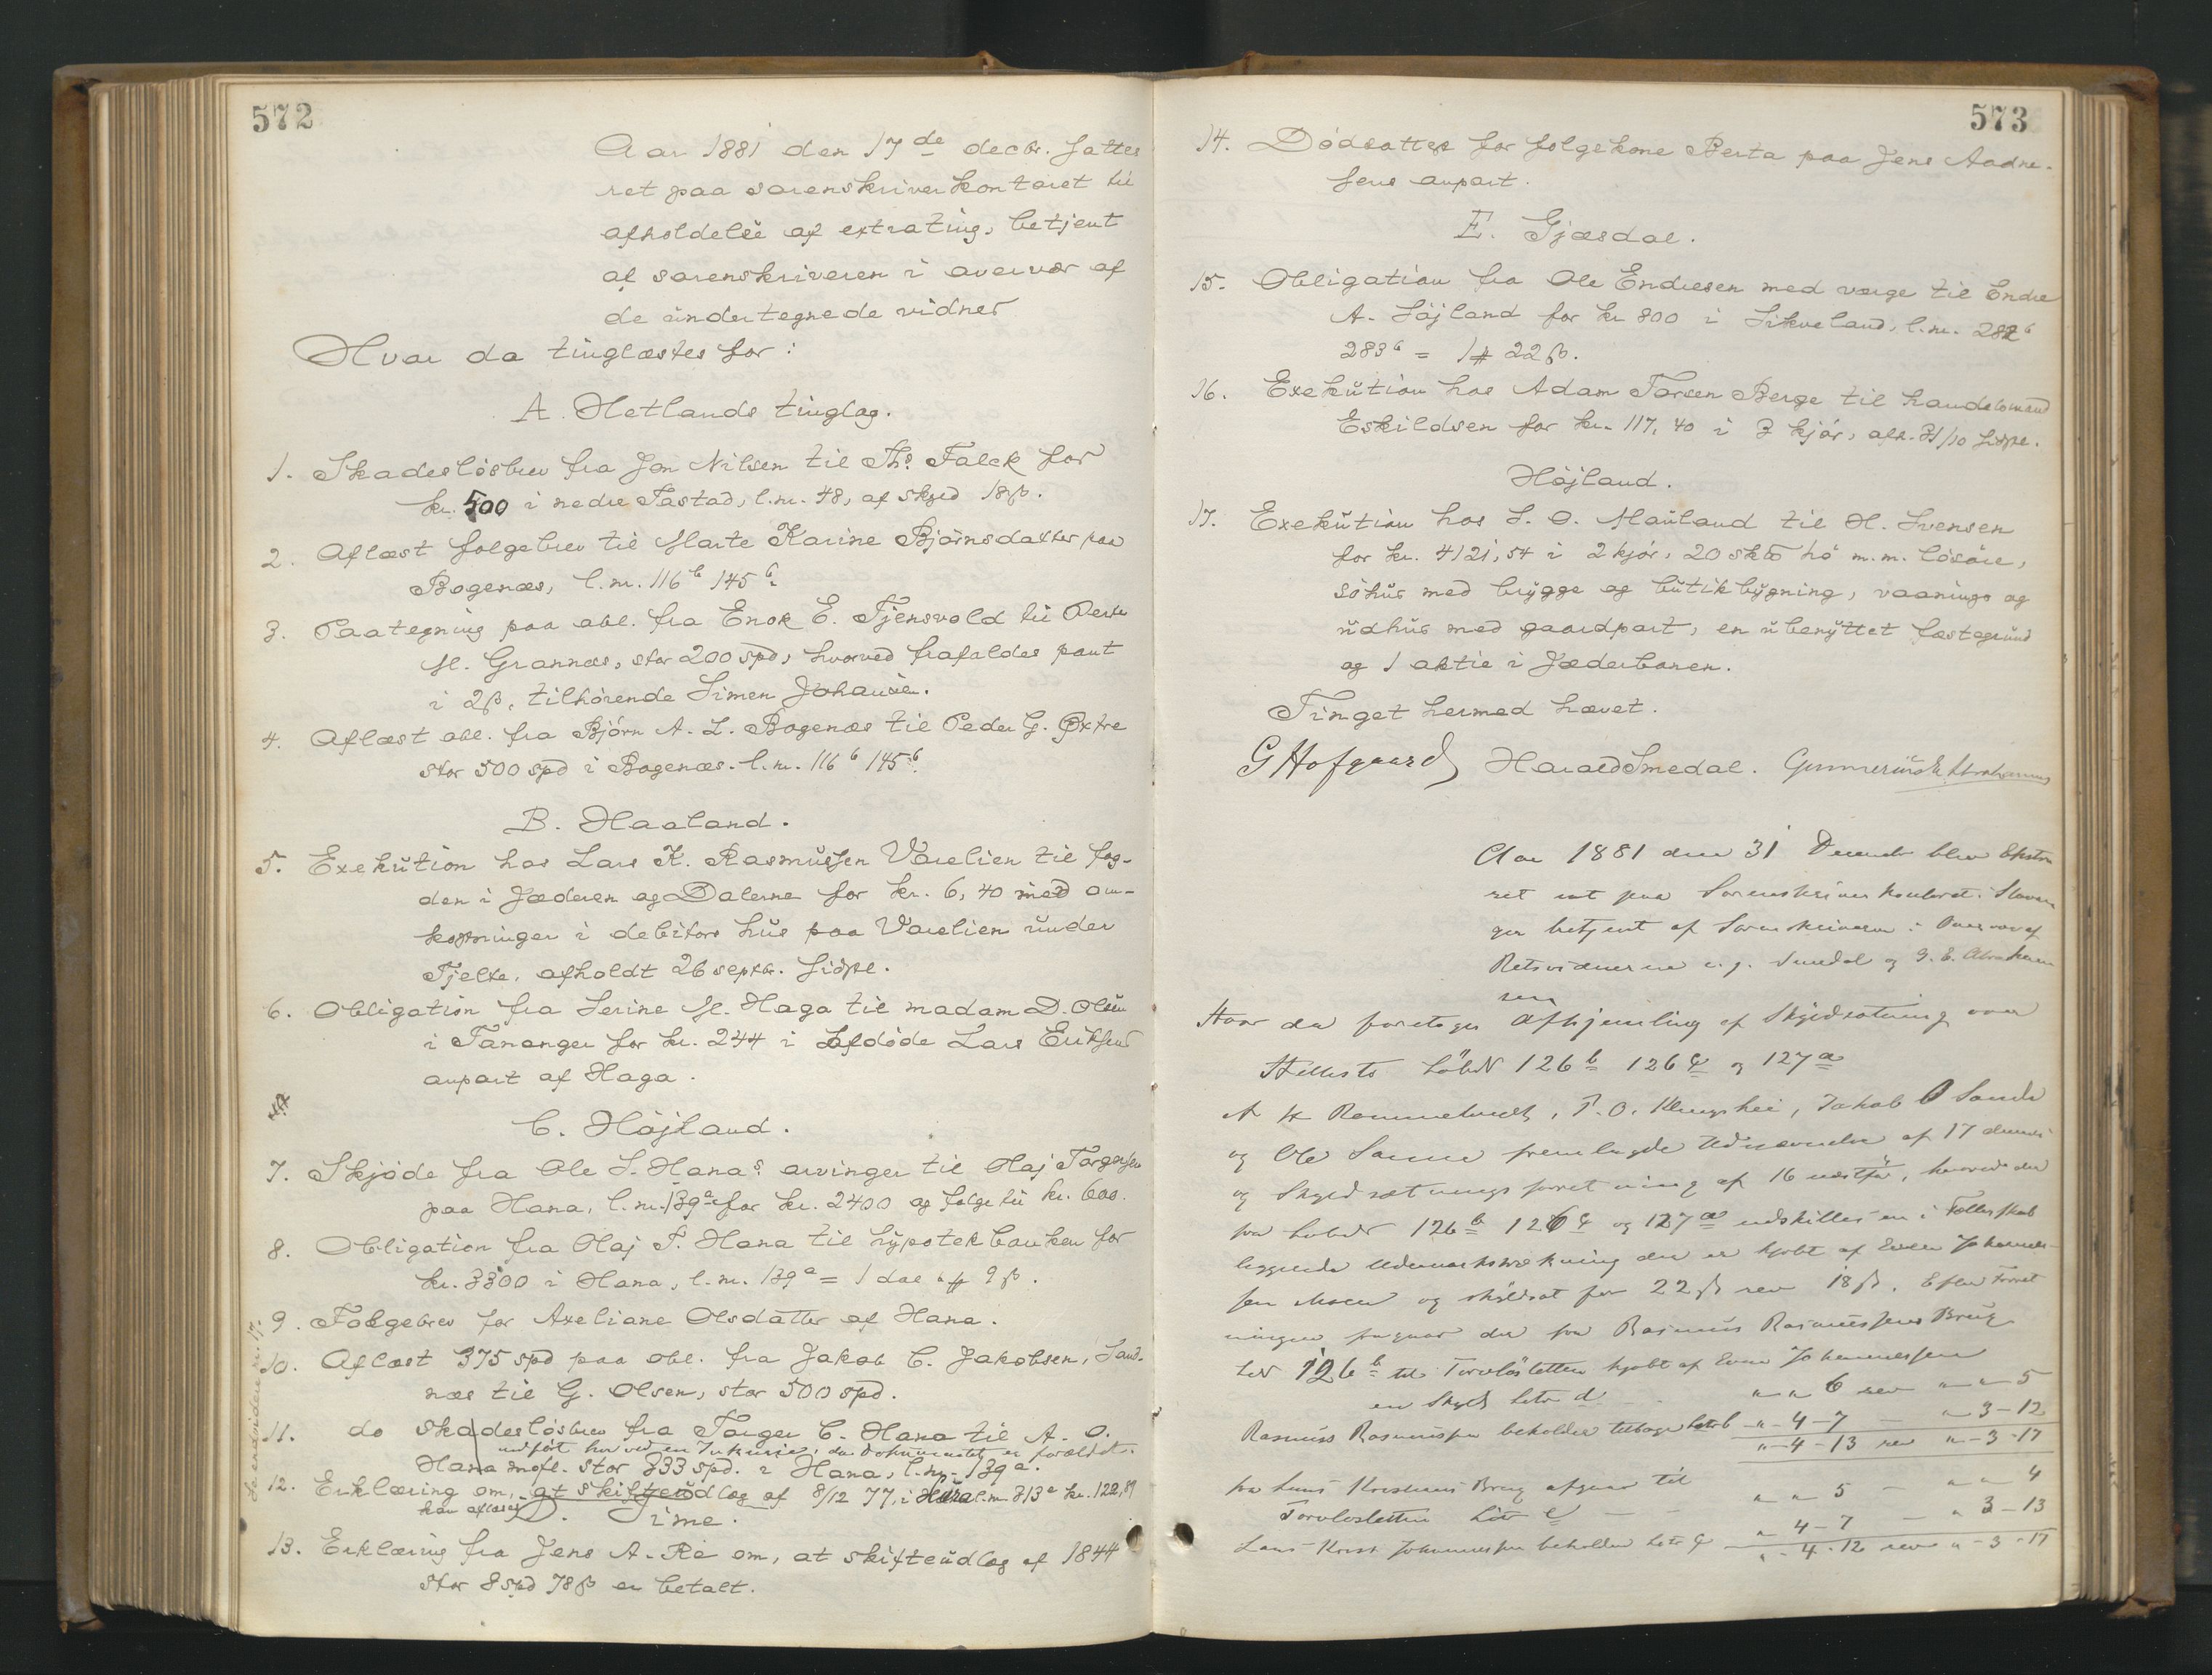 572
Aar 1881 den 17de decbr. sattes
ret paa sorenskriverkontoret til
afholdelse af extrating, betjent
af sorenskriveren i overvær af
de undertegnede vidner
Hvor da tinglæstes for:
A. Hetlands tinglag.
1. Skadesløsbrev fra Jon Nilsen til Ths. Falck for
kr. 500 i nedre Tastad, l.nr. 48, af skyld 18 ß.
2. Aflæst folgebrev til Marte Karine Bjørnsdatter paa
Bogenæs, l.nr. 116 b 145 b.
3. Paategning paa obl. fra Enok E. Tjensvold til Peder
M. Grannæs, stor 200 spd, hvorved frafaldes pant
i 2 ß, tilhørende Simen Johansen.
4. Aflæst obl. fra Bjørn A. L. Bogenæs til Peder G. Østre
stor 500 spd i Bogenæs. l.nr. 116 b 145 b.
B. Haaland.
5. Exekution hos Lars K. Rasmussen Varelien til fog-
den i Jæderen og Dalerne for kr. 6,40 med om-
kostninger i debitors hus paa Varelien under
Tjelte, afholdt 26 septbr. sidstl.
6. Obligation fra Serine M. Haga til madam D. Olsen
i Tananger for kr. 244 i afdøde Lars Eriksens
anpart af Haga.
C. Højland.
7. Skjøde fra Ole S. Hanas arvinger til Olaj Torgersen
paa Hana, l.nr. 139 a for kr. 2400 og følge til kr. 600.
8. Obligation fra Olaj T. Hana til hypotekbanken for
kr. 3300 i Hana, l.nr. 139 a = 1 dal 9 ß.
9. Folgebrev for Axeliane Olsdatter af Hana.
10. Aflæst 375 spd paa obl. fra Jakob C. Jakobsen, Sand-
næs til G. Olsen, stor 500 spd.
11. do skadesløsbrev fra Torger C. Hana til A. O.
indført her ved en Inkurie, da Dokumentet er forældet.
Hana mfl. stor 333 spd. i Hana, l.nr. 139 a.
12. Erklæring om, at skifteudlæg af 8/12 77, i l.nr. 313 a kr. 122,89
kan aflæses
D. Time.
13. Erklæring fra Jens A. Re om, at skifteudlæg af 1844
stor 8 spd 78 ß er betalt.
Se endvidere nr. 17.
573
14. Dødsattest for folgekone Berta paa Jens Aadne-
sens anpart.
E. Gjæsdal.
15. Obligation fra Ole Endresen med værge til Endre
A. Højland for kr 800 i Sikveland, l.nr. 282 b
283 b = 1 # 22 ß.
16. Exekution hos Adam Torsen Berge til handelsmand
Eskildsen for kr. 117,40 i 3 kjør, afh. 31/10 sidstl.
Højland.
17. Exekution hos S. O. Mauland til H. Svensen
for kr. 4121,54 i 2 kjør, 20 skd hø m.m. løsøre,
søhus med brygge og butikbygning, vaanings og
udhus med gaardpart, en ubenyttet fæstegrund
og 1 aktie i Jæderbanen.
Tinget hermed hævet.
G Hofgaard Harald Smedal.
Aar 1881 den 31 December blev Ekstra
ret sat paa Sorenskriverkontoret i Stavan
ger betjent af Sorenskriveren i Overvær af
Retsvidnerne Smedal og G. E. Abrahamsen
Hvor da foretoges Afhjemling af Skyldsætning over
Hellestø Løbnr 126 b 126 c og 127 a
Jakob O Sande
og Ole fremlagde Udnævnelse af 17
og Skyldsætningsforretning af 16 næstfør, hvorved der
fra Lobnr 126 b 126 c og 127 a udskilles en i Fællesskab
liggende Udmarksstrækning der er kjøbt af Sven Johannes-
sen og skyldsat for 22 ß rev 18 ß. Efter Forret
ningen fragaar der fra Rasmus Rasmussens Brug
Lnr 126 b til Torvløsletten kjøbt af Sven Johannessen
en Skyld Litr d " " 6 rev " " 5
Rasmus Rasmussen beholder tilbage Litr b " - 4 - 7 - " 3 - 12
" - 4 - 13 rev " - 3 - 17
fra Lars Kristians Brug afgaar til
Torvløsletten Litr e " " 5 - " " 4
Lars Krist Johannessen beholder Litr c " 4 - 7 - " 3 - 13
" - 4 - 12 rev " - 3 - 17